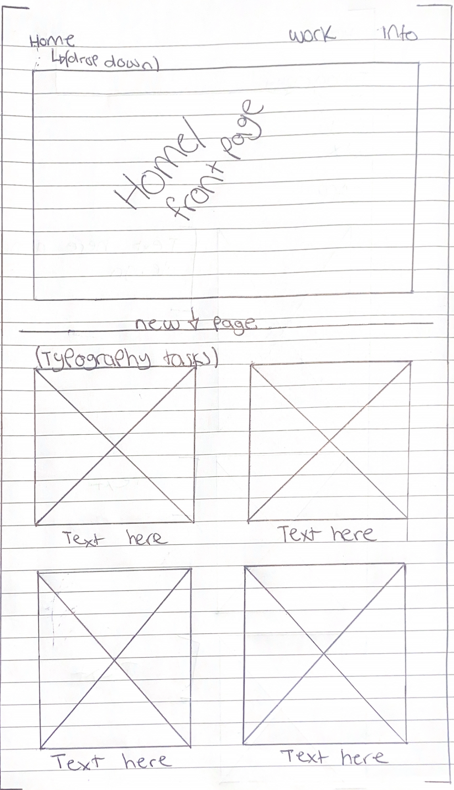 Home work Info
↳(drop down)
Home/
front page
new ↓ page
(Typography tasks)
Text here Text here
Text here Text here